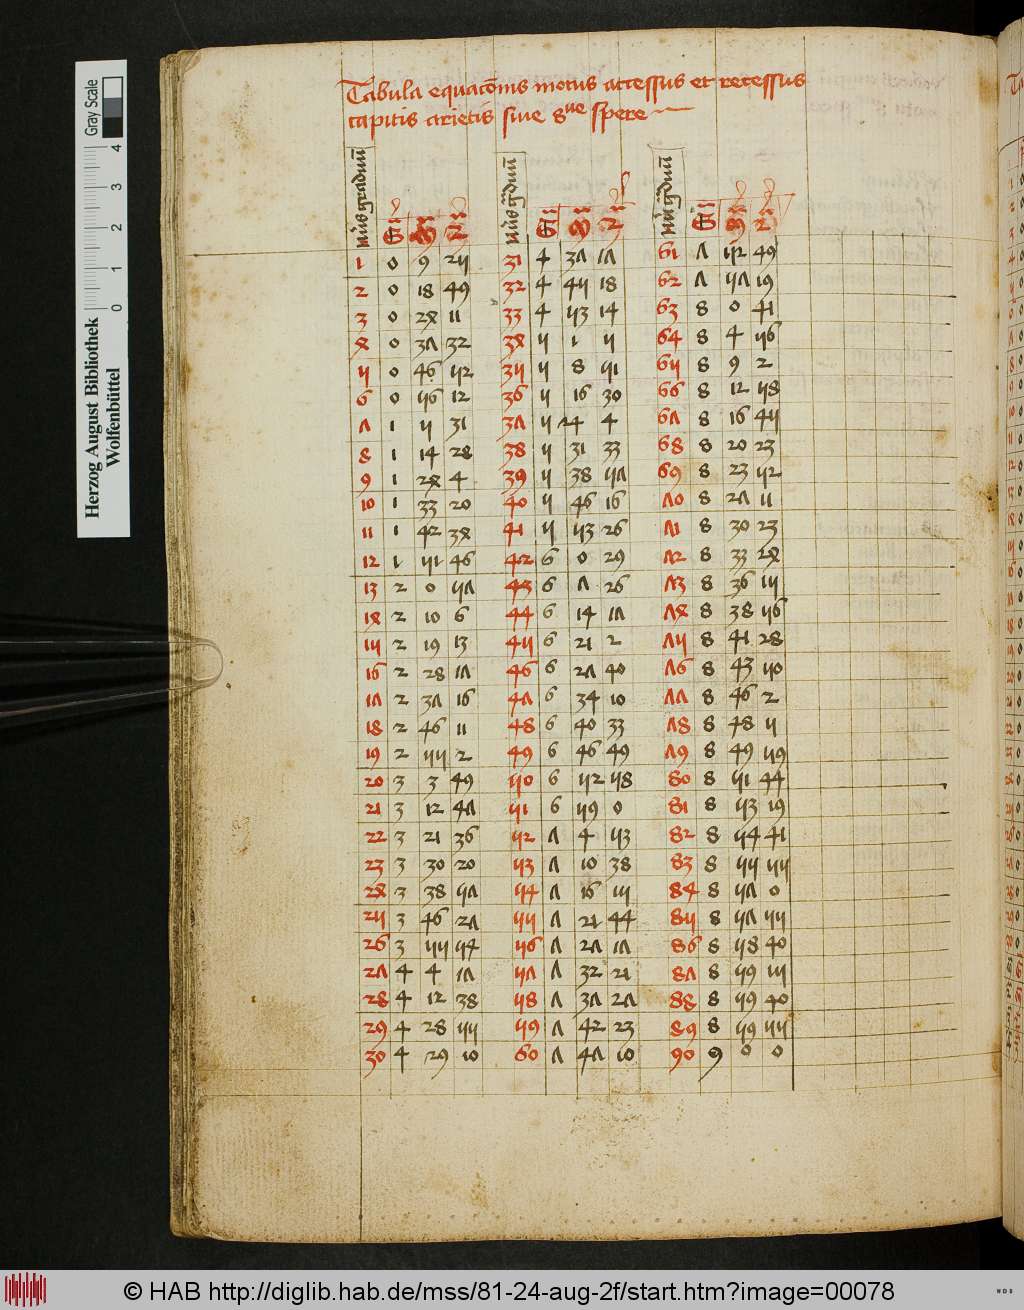 Tabula equacōnis motus accessus et recessus
capitis arietis siue 8ue spere
nūs graduū G M 2 nūs gͣduū G M 2 nūs gͣduū G M 2
1 0 9 25 31 4 37 17 61 7 52 49
2 0 18 49 32 4 45 18 62 7 57 19
3 0 24 11 33 4 53 14 63 8 0 41
4 0 37 32 34 5 1 5 64 8 4 56
5 0 46 52 35 5 8 51 65 8 9 2
6 0 56 12 36 5 16 30 66 8 12 58
7 1 5 31 37 5 24 4 67 8 16 45
8 1 14 28 38 5 31 33 68 8 20 23
9 1 24 4 39 5 38 57 69 8 23 52
10 1 33 20 40 5 46 16 70 8 27 11
11 1 42 34 41 5 53 26 71 8 30 23
12 1 51 46 42 6 0 29 72 8 33 24
13 2 0 57 43 6 7 26 73 8 36 15
14 2 10 6 44 6 14 17 74 8 38 56
15 2 19 13 45 6 21 2 75 8 41 28
16 2 28 17 46 6 27 40 76 8 43 50
17 2 37 16 47 6 34 10 77 8 46 2
18 2 46 11 48 6 40 33 78 8 48 5
19 2 55 2 49 6 46 49 79 8 49 59
20 3 3 49 50 6 52 58 80 8 51 44
21 3 12 47 51 6 59 0 81 8 53 19
22 3 21 36 52 7 4 53 82 8 54 41
23 3 30 20 53 7 10 38 83 8 55 55
24 3 38 57 54 7 16 15 84 8 57 0
25 3 46 27 55 7 21 44 85 8 57 55
26 3 55 54 56 7 27 17 86 8 58 40
27 4 4 17 57 7 32 21 87 8 59 15
28 4 12 38 58 7 37 27 88 8 59 40
29 4 28 55 59 7 42 23 89 8 59 55
30 4 29 10 60 7 47 10 90 9 0 0
Herzog August Bibliothek
Wolfenbüttel
0 1 2 3 4
Gray Scale
© HAB http://diglib.hab.de/mss/81-24-aug-2f/start.htm?image=00078